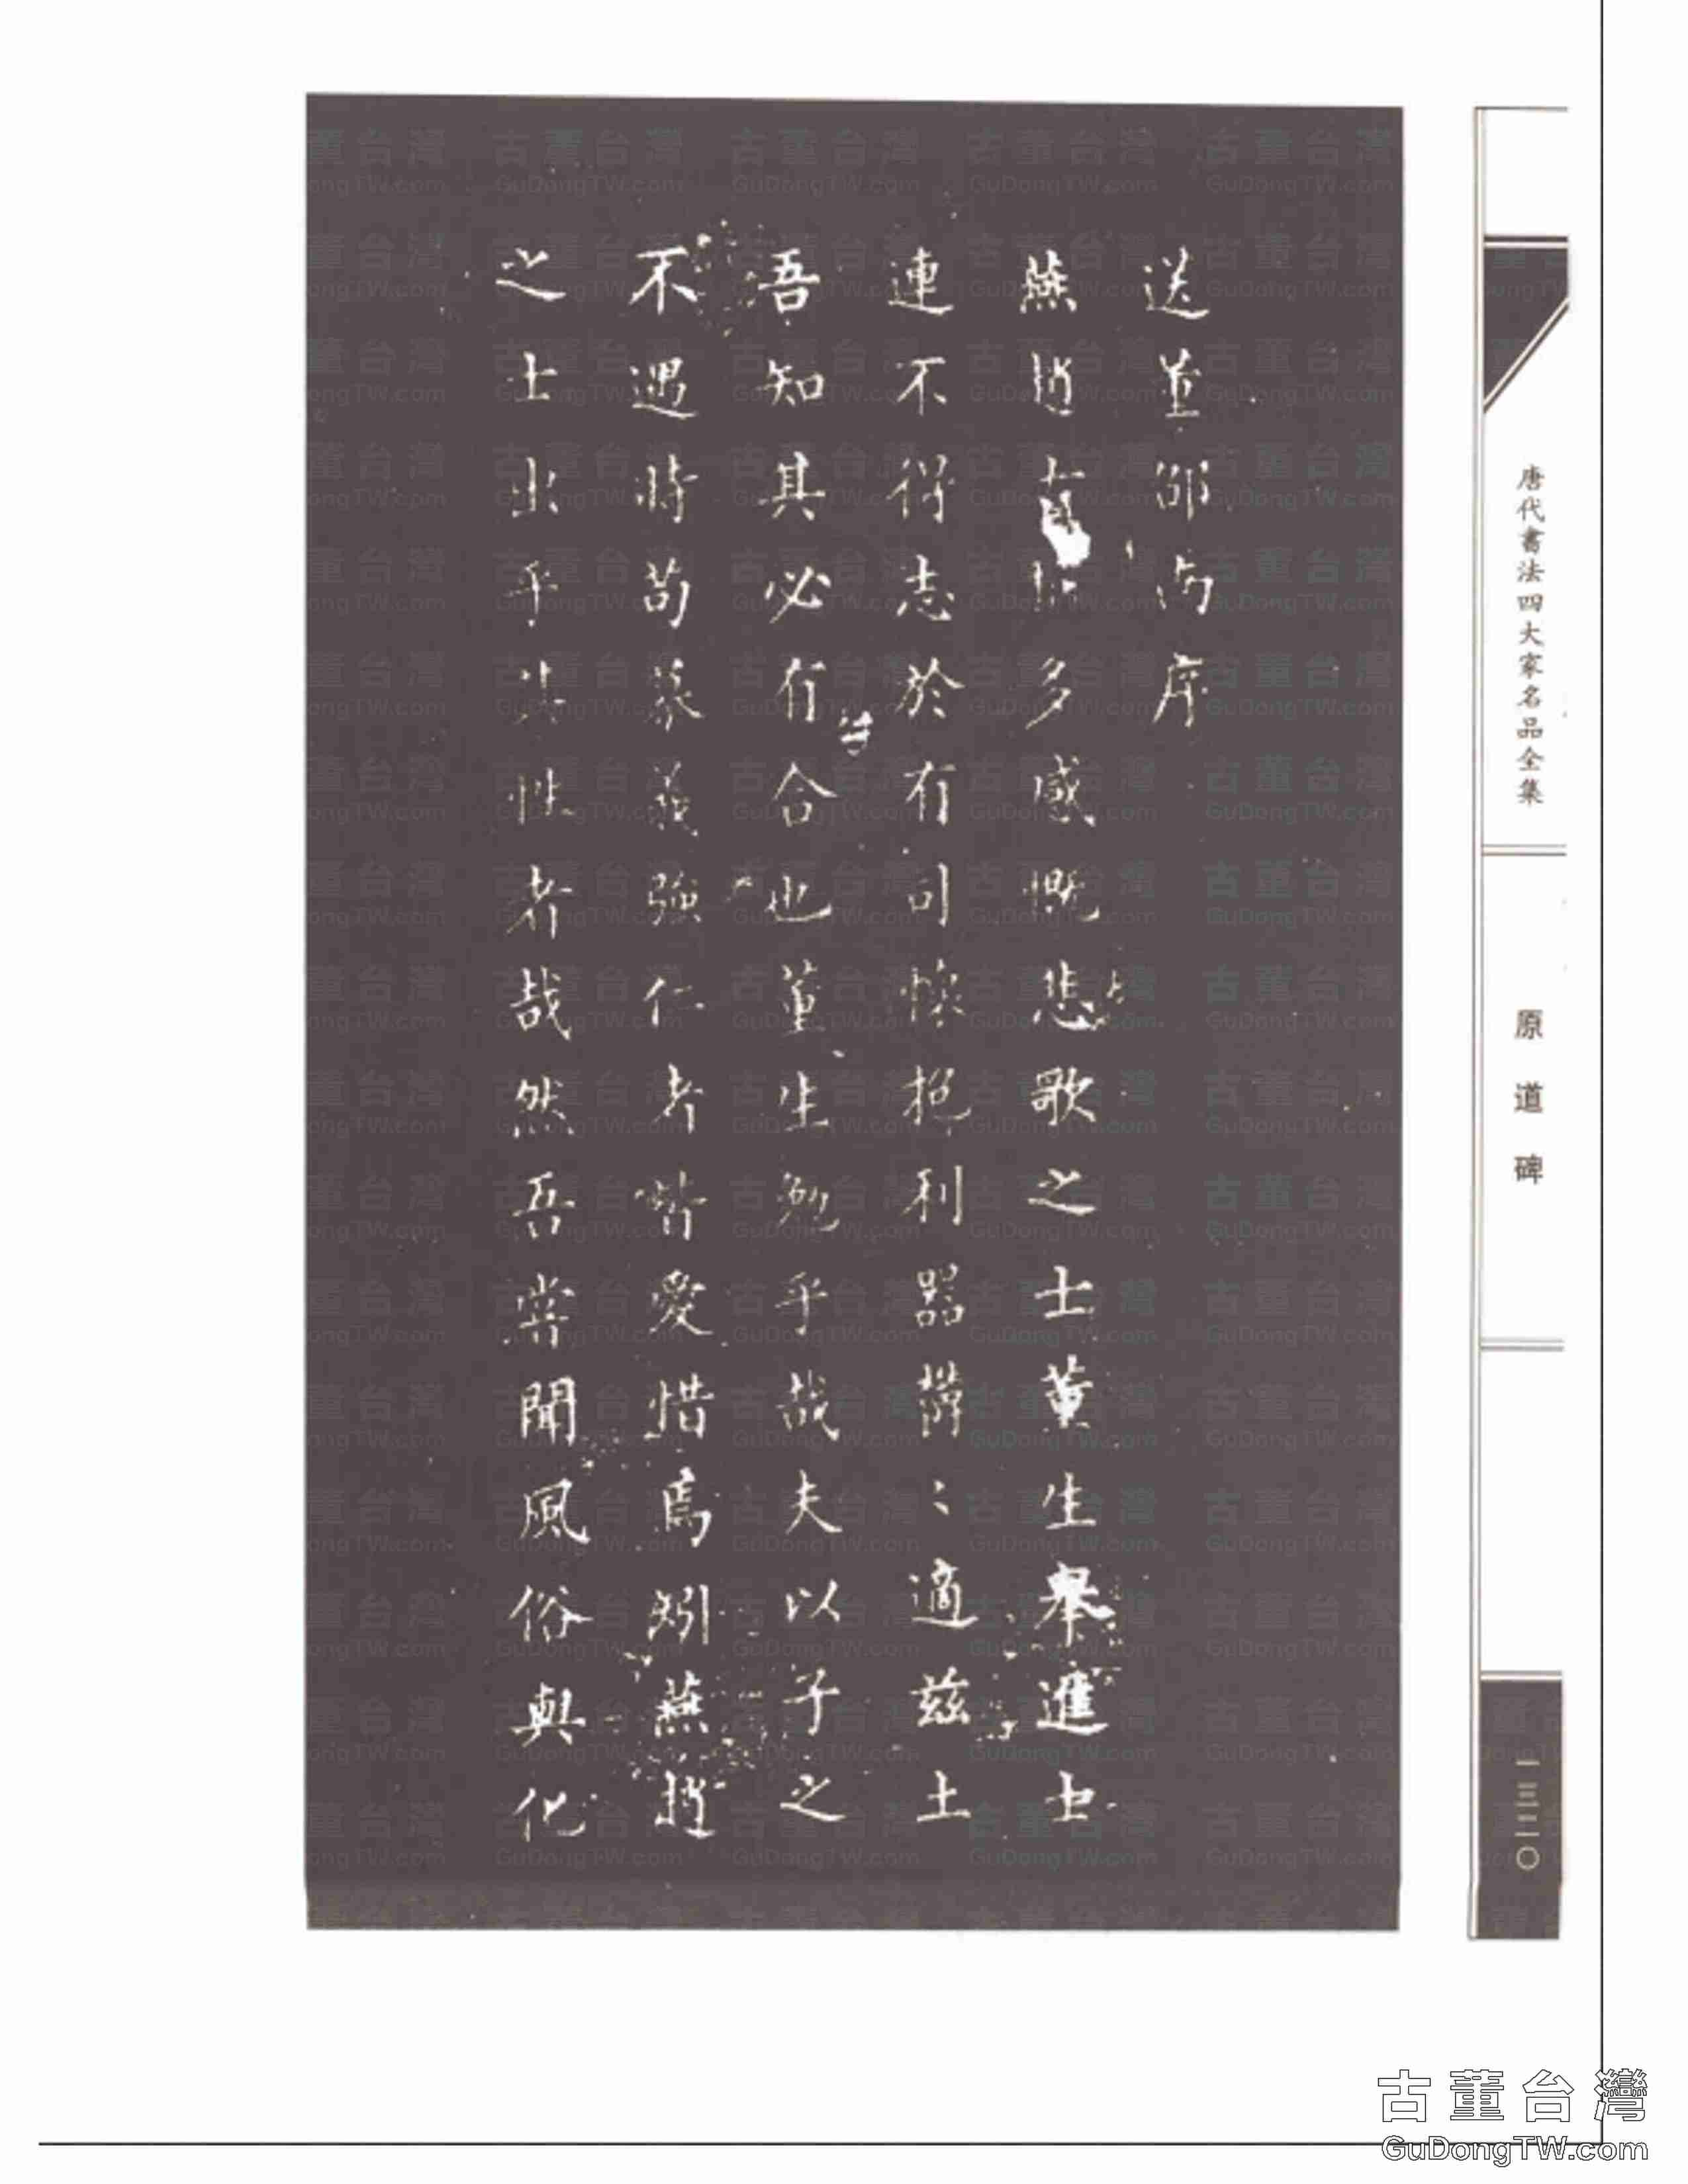 送董邵南序
燕趙古稱多感慨悲歌之士董生舉進士
連不得志於有司懷抱利器欝〻適茲土
吾知其必有合也董生勉乎哉夫以子之
不遇時苟慕義彊仁者皆愛惜焉矧燕趙
之士出乎其性者哉然吾嘗聞風俗與化
唐代書法四大家名品全集
原道碑
一三二〇
古董台灣
GuDongTW.com